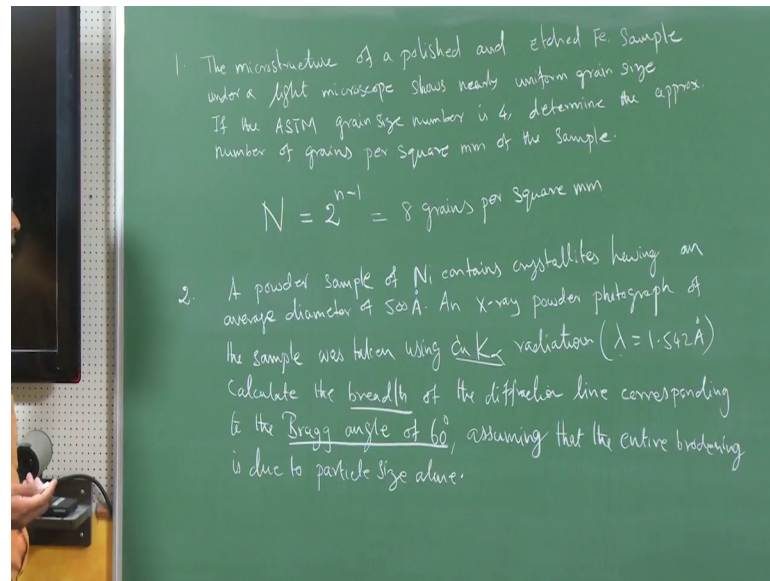 1. The microstructure of a polished and etched Fe. Sample
under a light microscope shows nearly uniform grain size
If the ASTM grain size number is 4, determine the approx.
number of grains per square mm of the sample.
N = 2^{n-1} = 8 grains per square mm
2. A powder sample of Ni contains crystallites having an
average diameter of 500Å. An X-ray powder photograph of
the sample was taken using Cu Kα radiation (λ = 1.542Å)
Calculate the breadth of the diffraction line corresponding
to the Bragg angle of 60°, assuming that the entire brodening
is due to particle size alone.